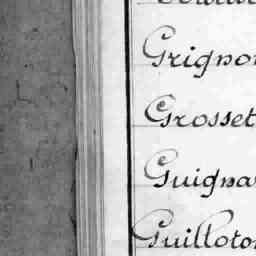 Grigno
Grosset
Guigna
Guilloto